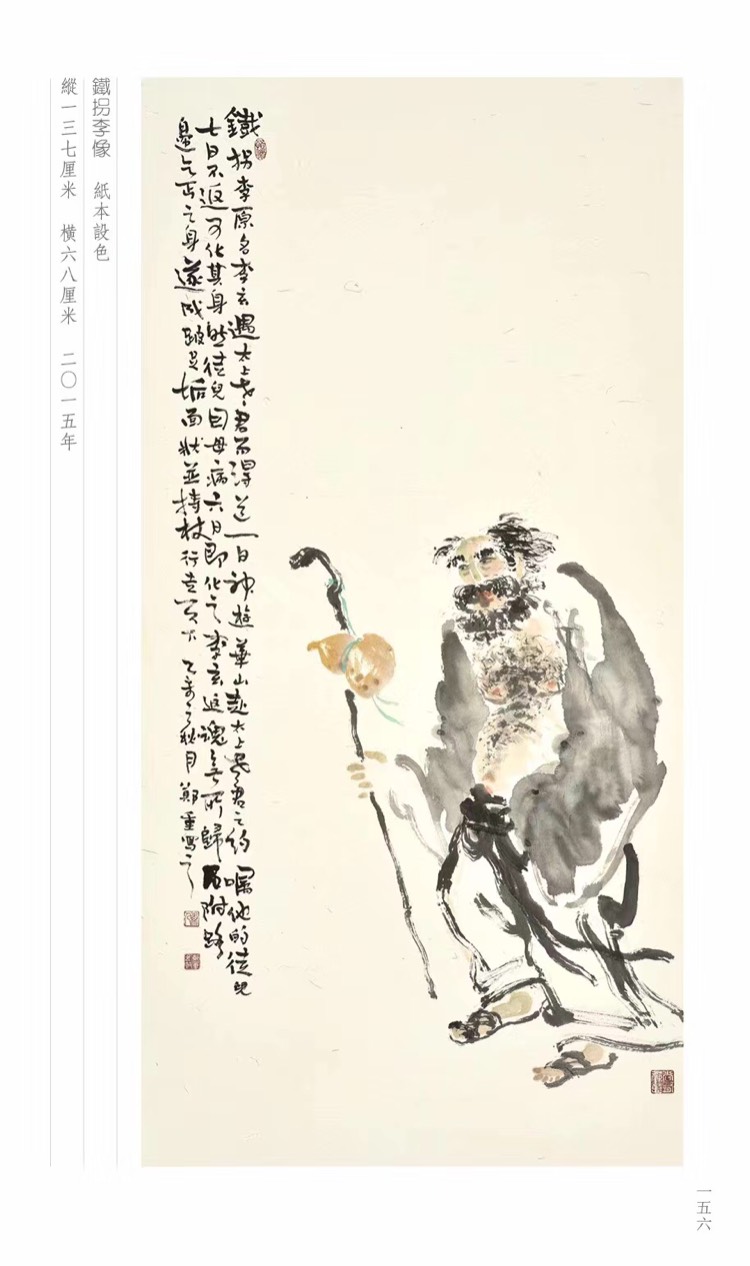 鐵拐李像　紙本設色
縱一三七厘米　橫六八厘米　二〇一五年
鐵拐李原名李玄遇太上老君而得道一日神遊華山赴太上老君之約囑他的徒兒
七日不返可化其身然徒兒因母病六日即化之李玄返魂無所歸乃附路
邊乞丐之身遂成跛足垢面狀並持杖行走天下乙未之秋月鄭重寫之
一五六